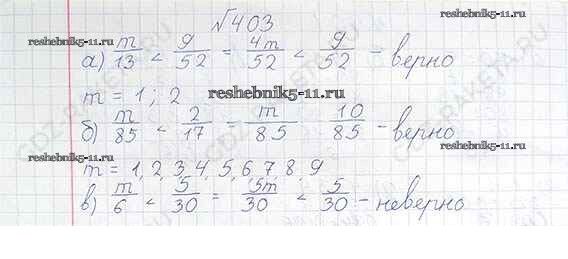 №403
reshebnik5-11.ru reshebnik5-11.ru
а) m/13 < 9/52 = 4m/52 < 9/52 - верно
m = 1; 2 reshebnik5-11.ru
б) m/85 < 2/17 = m/85 10/85 - верно
reshebnik5-11.ru reshebnik5-11.ru
m = 1, 2, 3, 4, 5, 6, 7, 8, 9
в) m/6 < 5/30 = 5m/30 < 5/30 - неверно
GDZ-RAKETA.RU